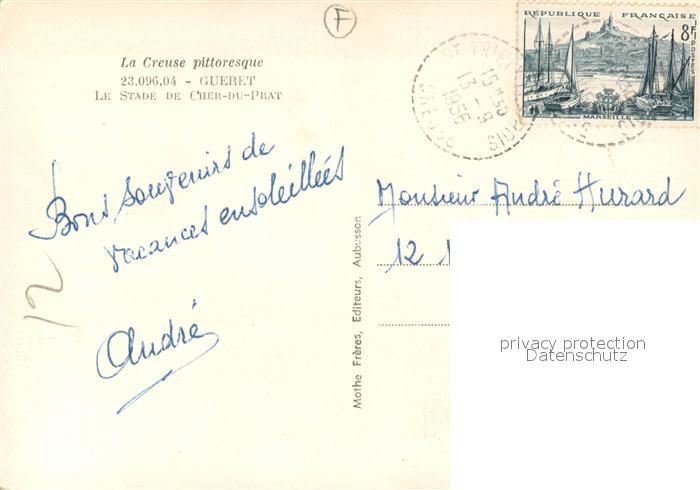 F
La Creuse pittoresque
23.096.04 - GUERET
LE STADE DE CHER-DU-PRAT
RÉPUBLIQUE FRANÇAISE
8F
POSTES
MARSEILLE
15 H 30
13 - 9
1956
CREUSE
Bons souvenirs de
vacances ensoleillées
André
12
Mothe Frères, Editeurs, Aubusson
Monsieur André Hurard
12
privacy protection
Datenschutz